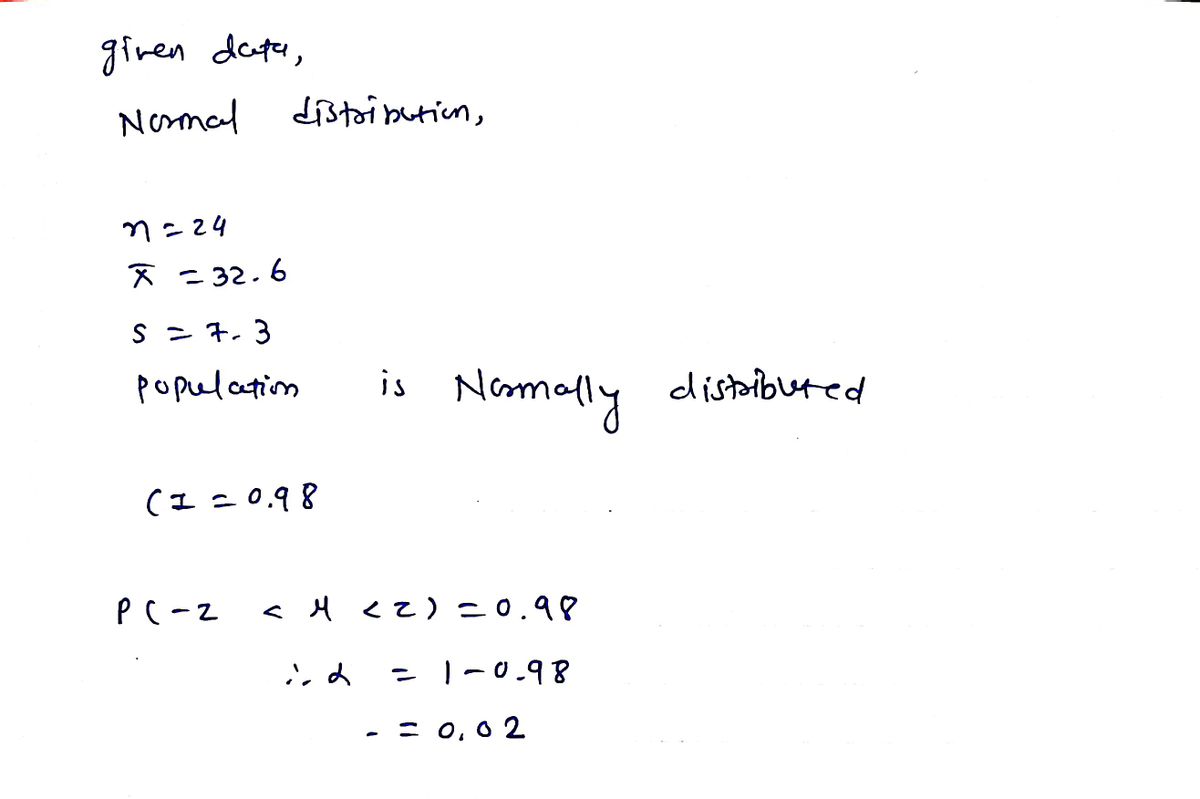 given data,
Normal distribution,
n = 24
x̄ = 32.6
S = 7.3
population is Normally distributed
CI = 0.98
P(-z < μ < z) = 0.98
∴ α = 1-0.98
= 0.02